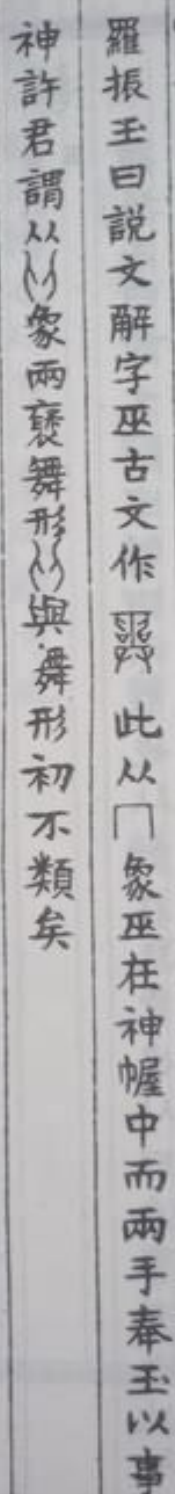 羅振玉曰説文解字巫古文作𢍮此从冂象巫在神幄中而兩手奉玉以事
神許君謂从从象兩褎舞形从與舞形初不類矣